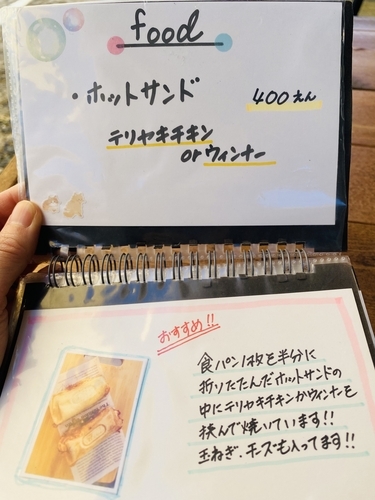 food
・ホットサンド 400えん
テリヤキチキン
orウィンナー
おすすめ!!
食パン1枚を半分に
折りたたんだホットサンドの
中にテリヤキチキンかウィンナーを
挟んで焼いています!!
玉ねぎ、チーズも入ってます!!